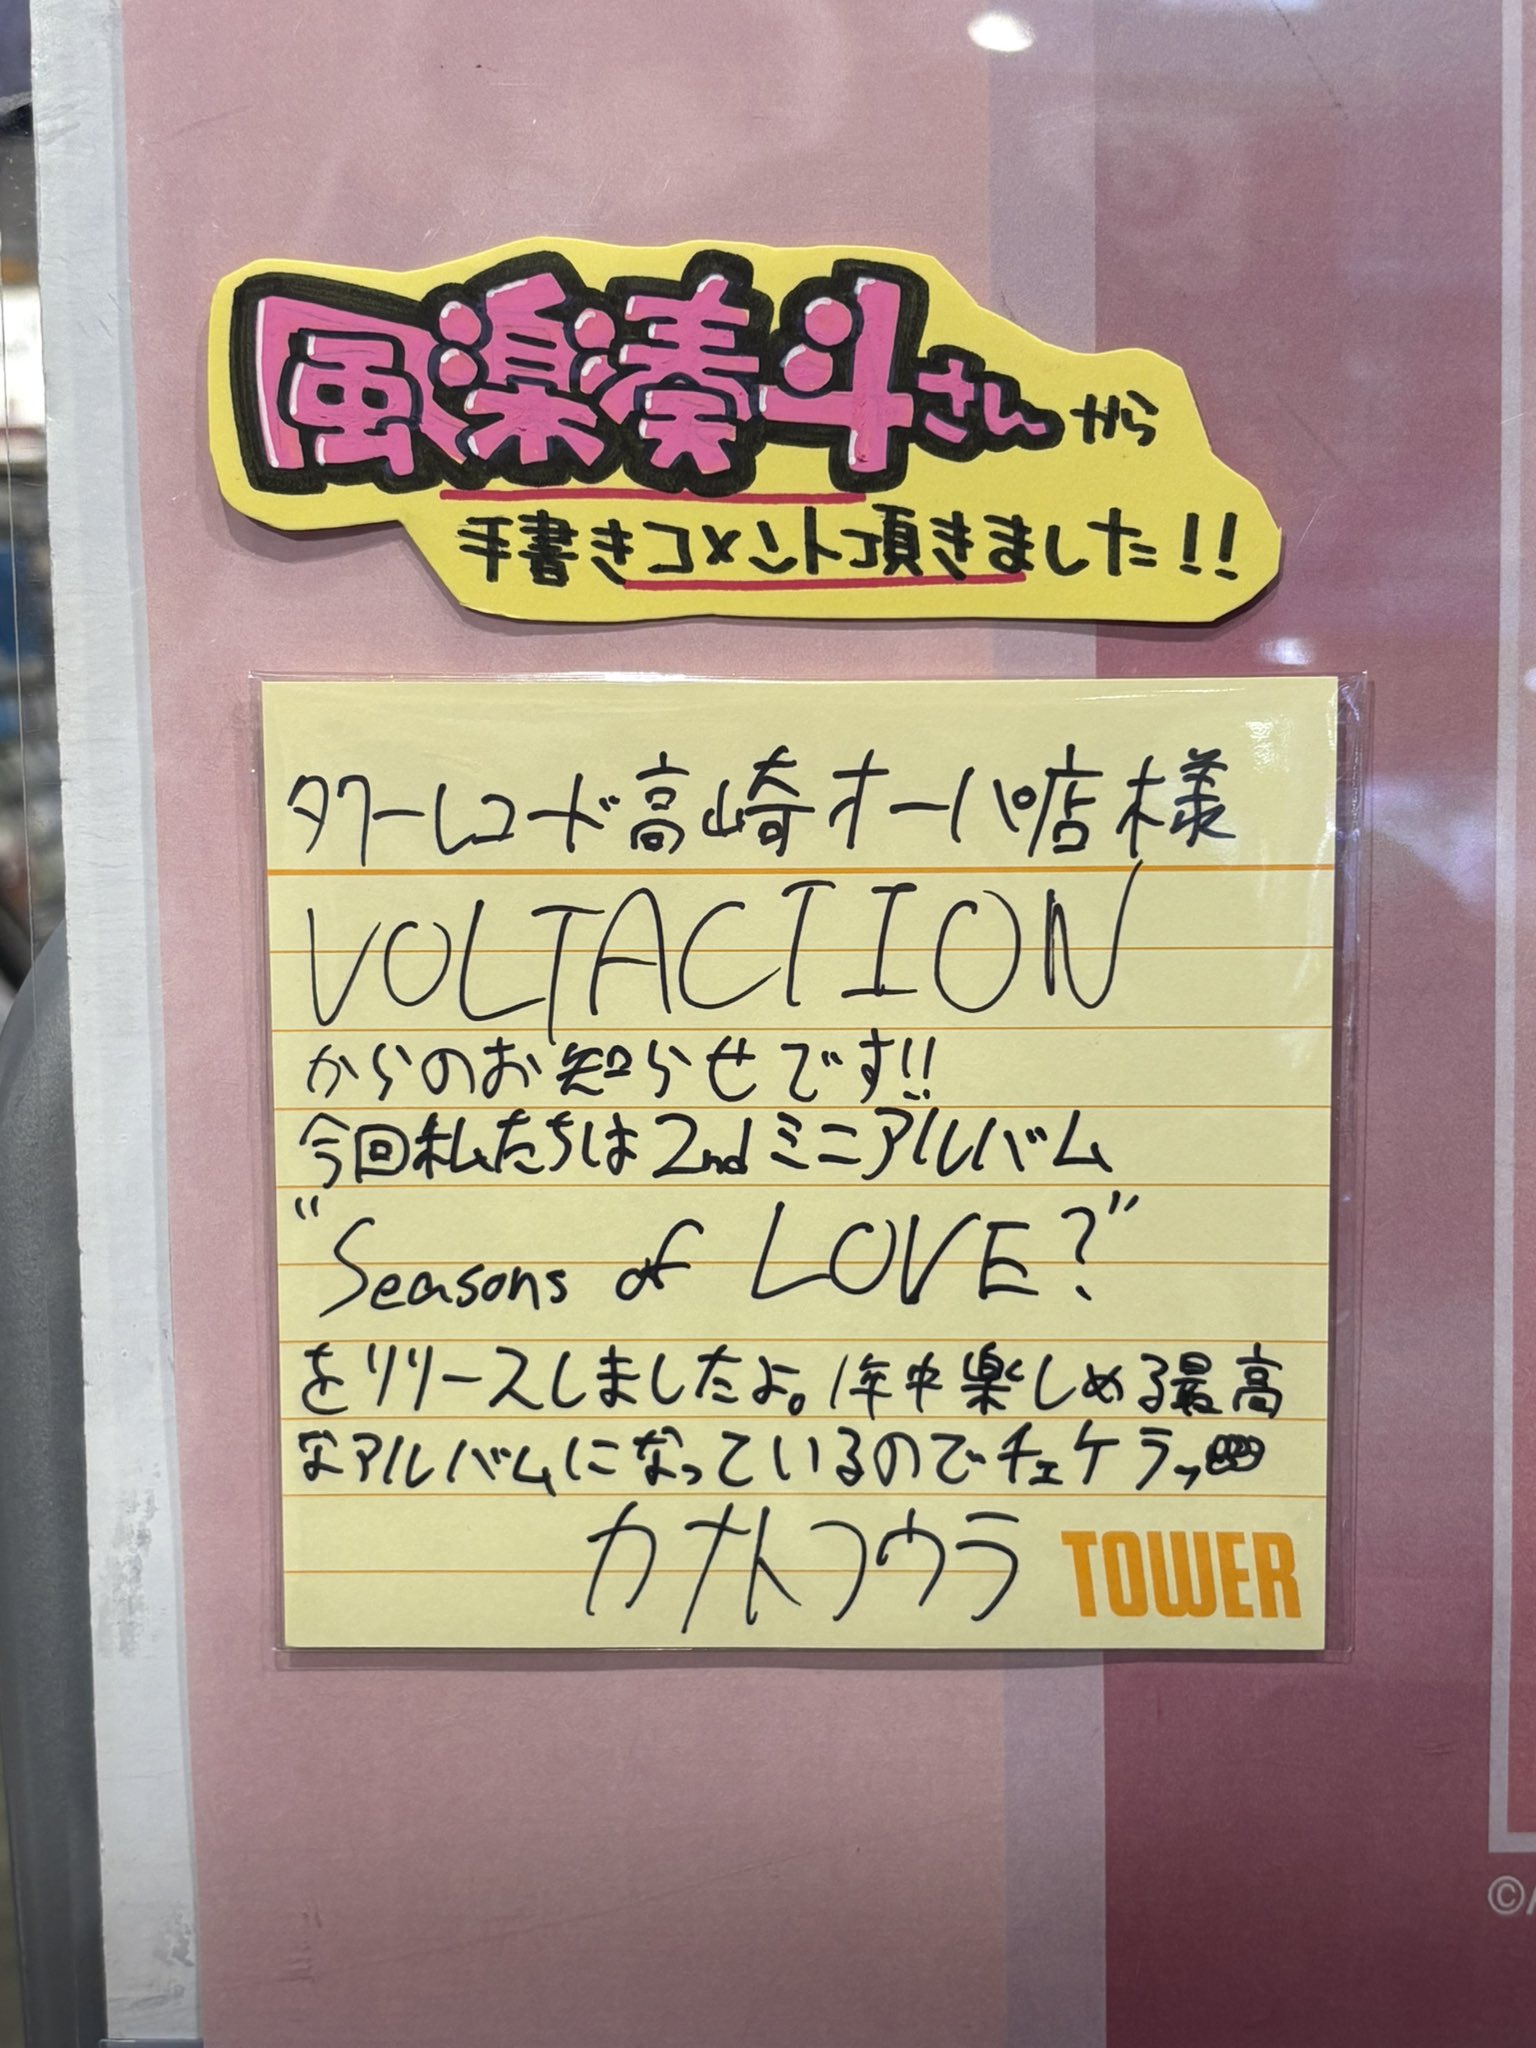 風楽奏斗さんから
手書きコメント頂きました!!
タワーレコード高崎オーパ店様
VOLTACTION
からのお知らせです!!
今回私たちは2ndミニアルバム
"Seasons of LOVE?"
をリリースしましたよ。1年中楽しめる最高
なアルバムになっているのでチェケラッ
カナトフウラ
TOWER
©